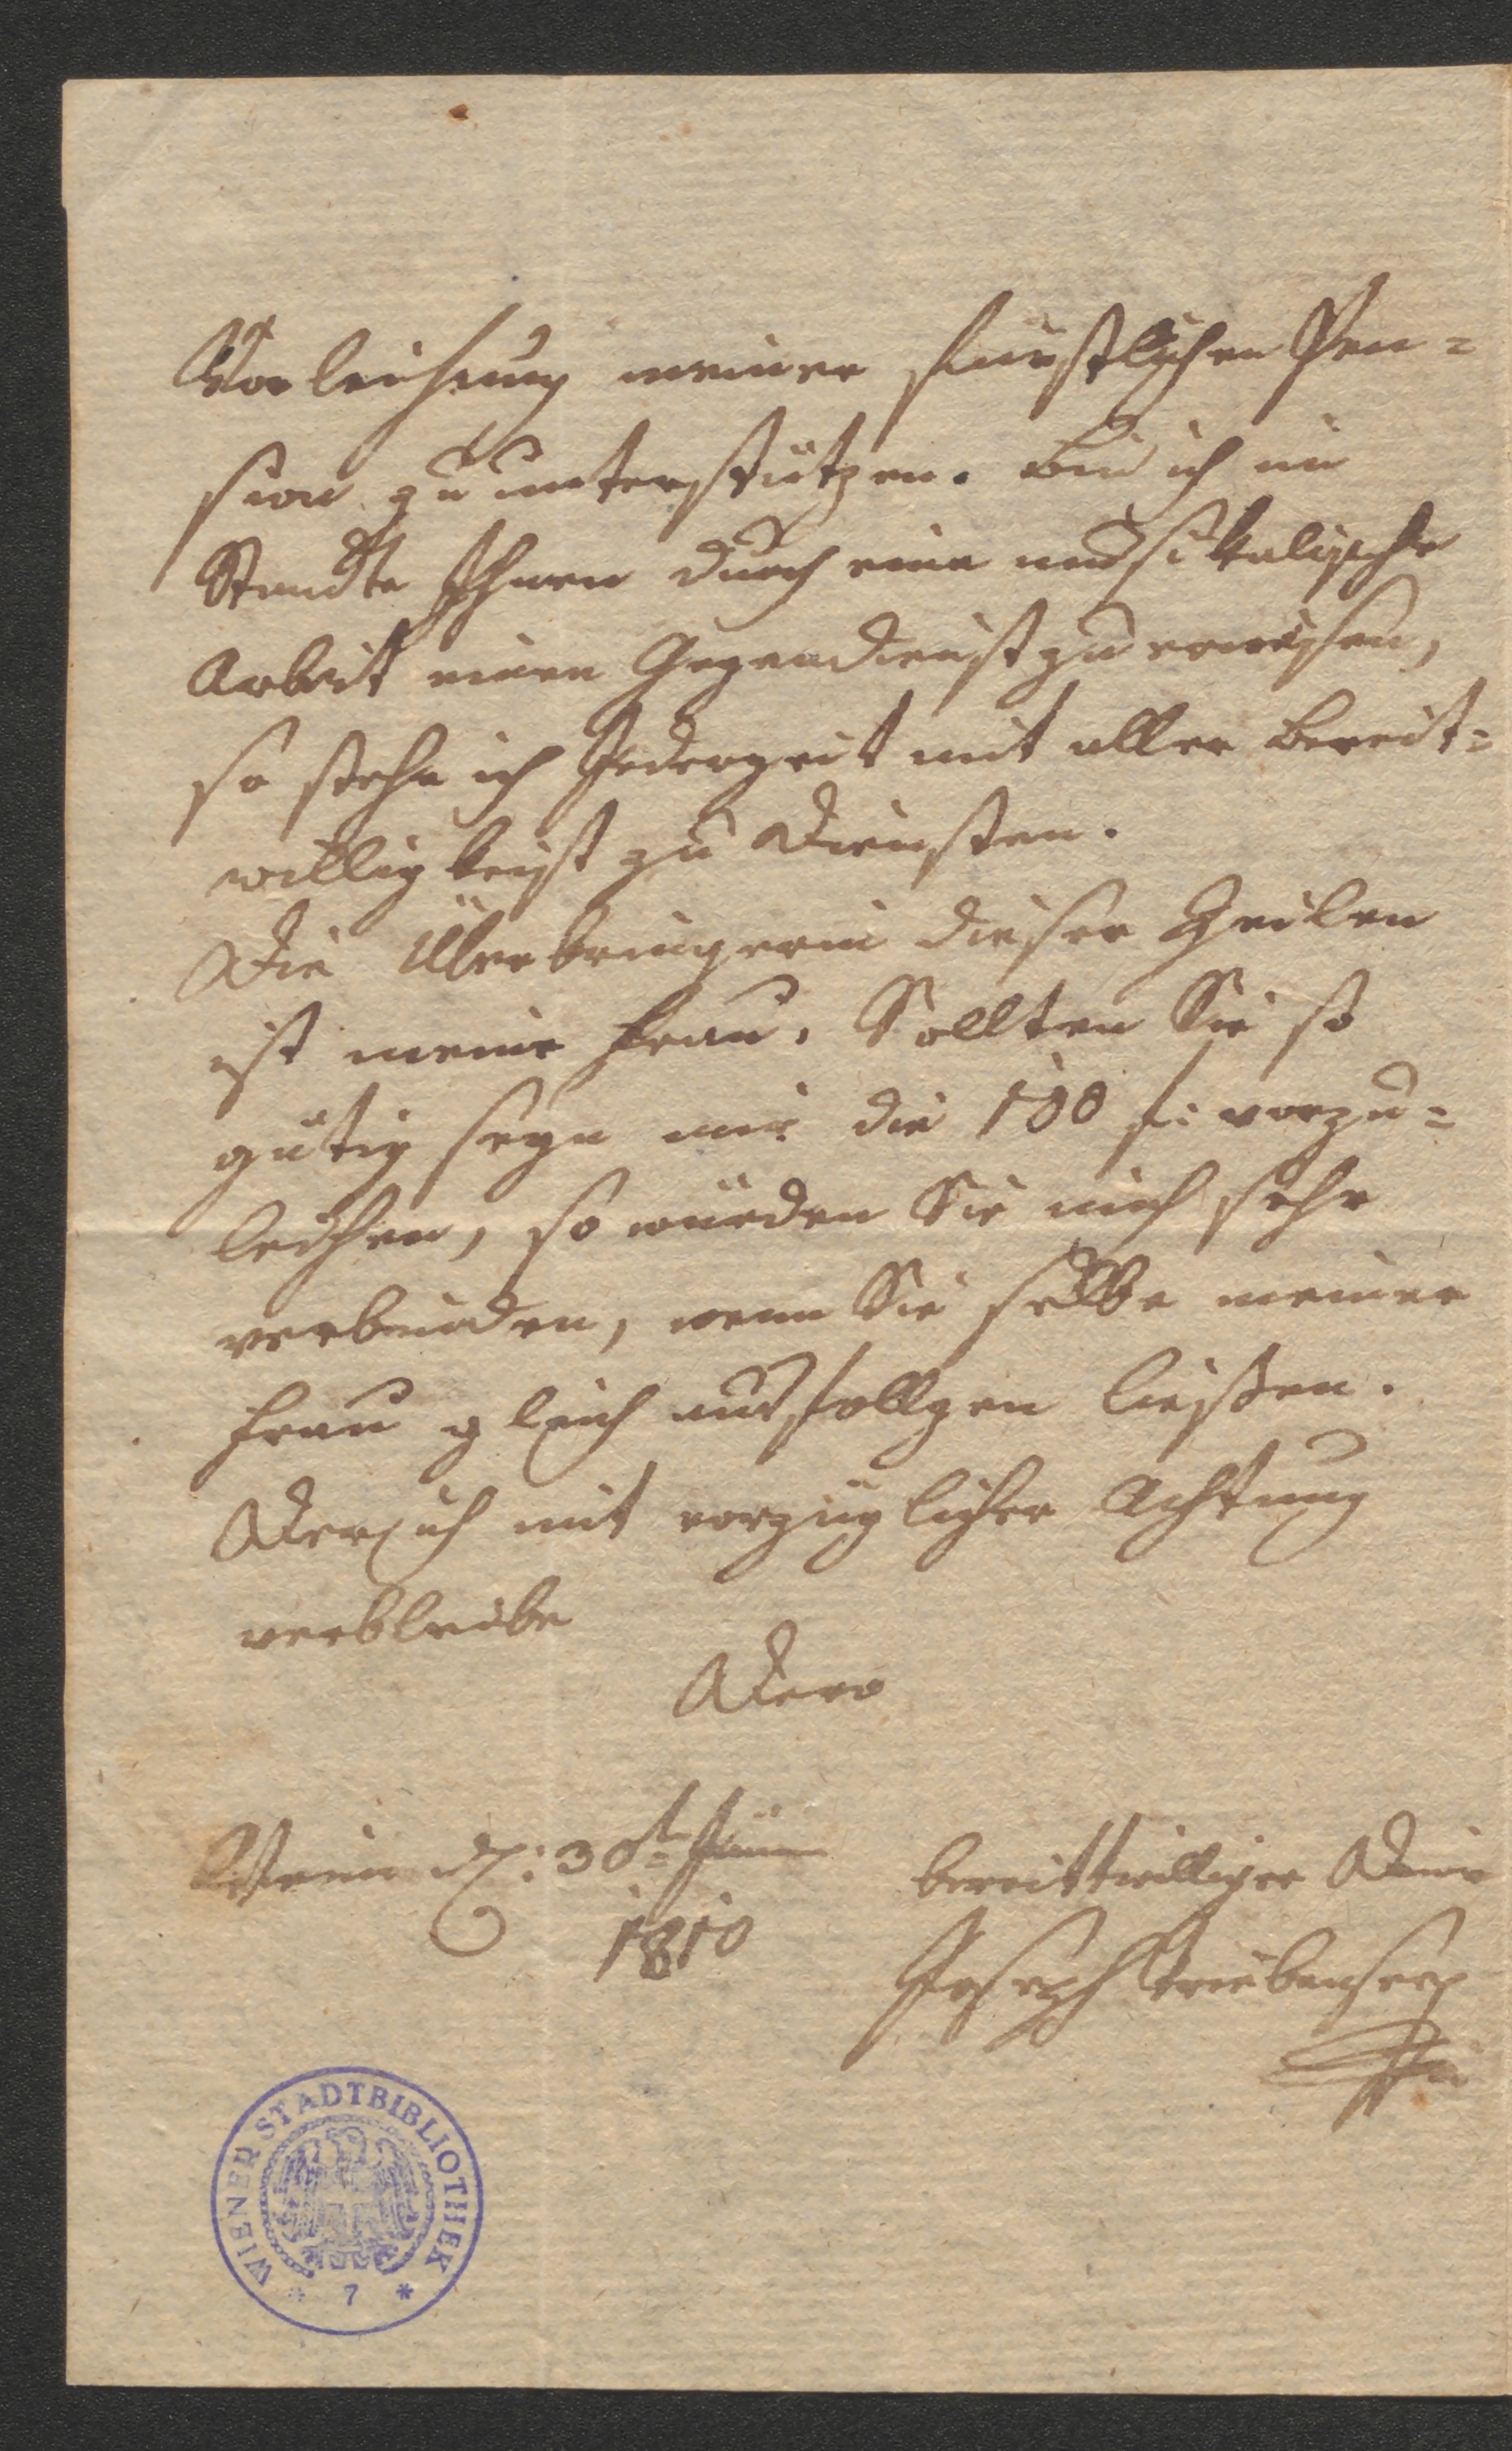 Vorleihung meiner fürstlichen Pen=
sion zu unterstützen. Bin ich im
Standte Ihnen durch eine musikalische
Arbeit einen Gegendienst zu erweisen,
so stehe ich Jederzeit mit aller Bereit=
willigkeist zu Diensten.
Die Überbringerin dieser Zeilen
ist meine Frau. Sollten Sie so
gütig seyn mir die 100 f: vorzu=
leihen, so würden Sie mich sehr
verbinden, wenn Sie selbe meiner
Frau gleich ausfollgen ließen.
Der ich mit vorzüglicher Achtung
verbleibe
Dero
Wien d: 30t= Juni
1810
bereittwilliger Dien
Joseph Triebenseeg
WIENER STADTBIBLIOTHEK
* 7 *